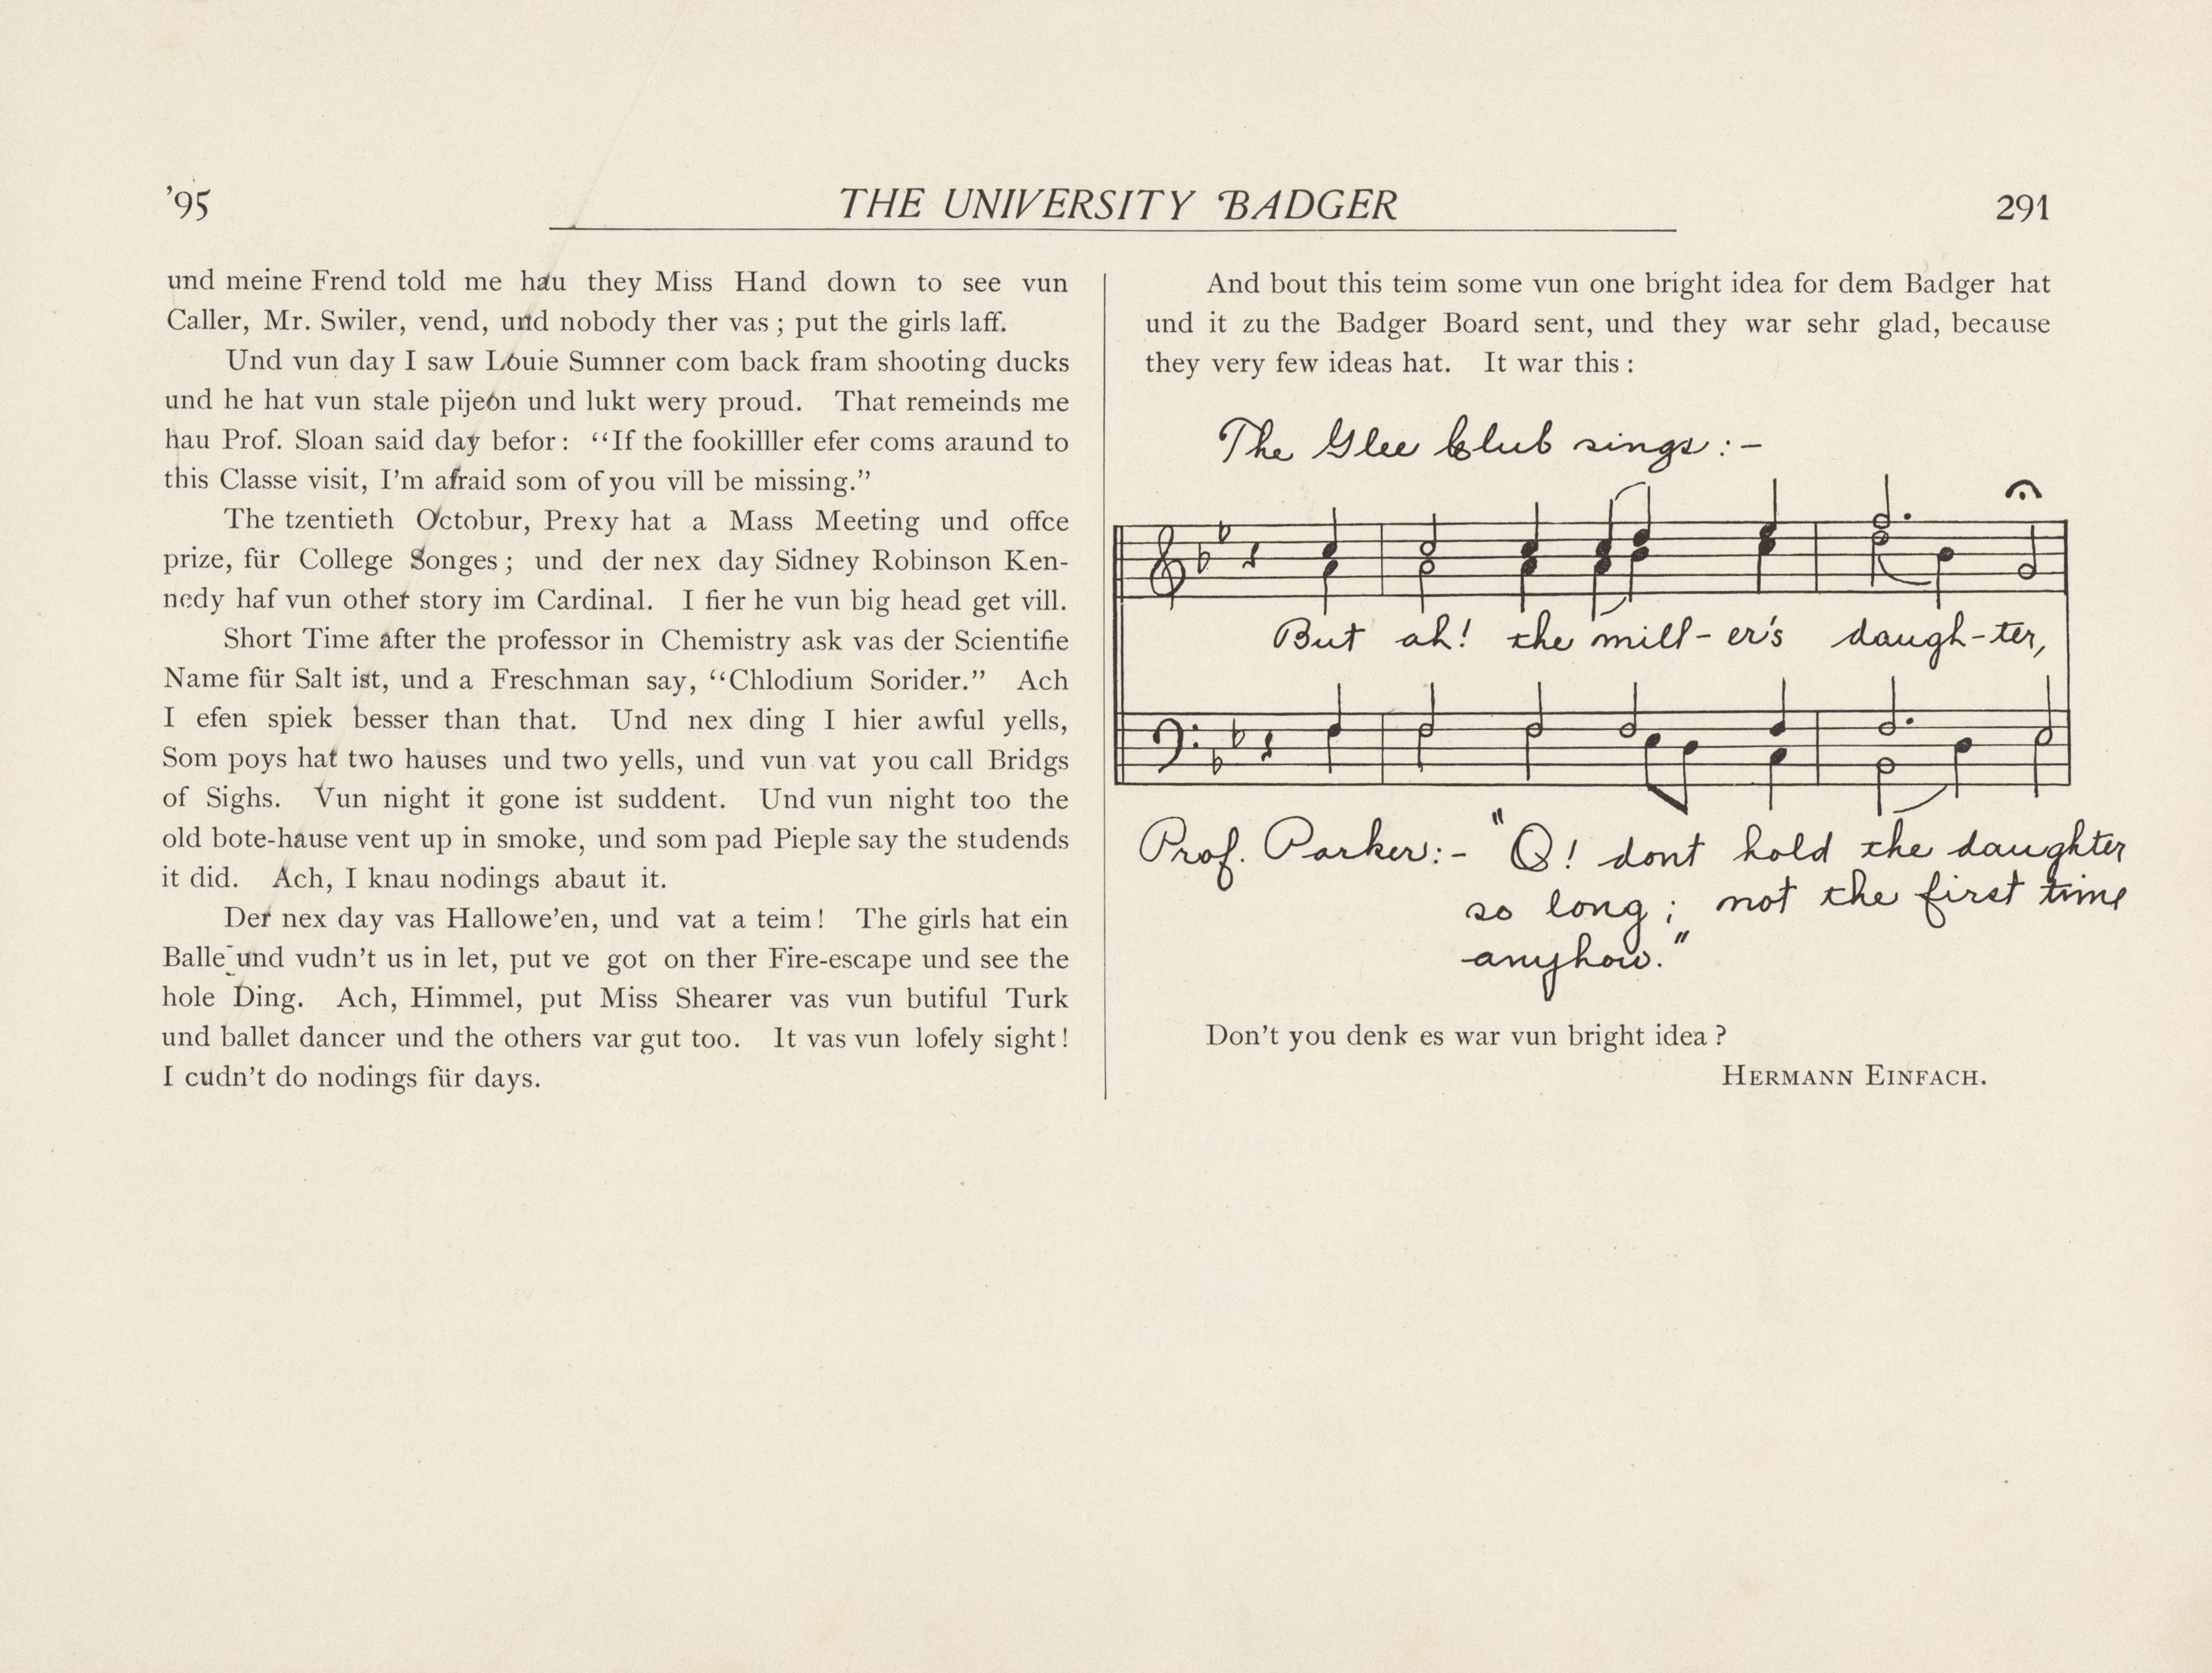 '95
THE UNIVERSITY BADGER
291
und meine Frend told me hau they Miss Hand down to see vun
Caller, Mr. Swiler, vend, und nobody ther vas ; put the girls laff.
Und vun day I saw Louie Sumner com back fram shooting ducks
und he hat vun stale pijeon und lukt wery proud. That remeinds me
hau Prof. Sloan said day befor: “If the fookilller efer coms araund to
this Classe visit, I'm afraid som of you vill be missing.”
The tzentieth Octobur, Prexy hat a Mass Meeting und offce
prize, für College Songes ; und der nex day Sidney Robinson Ken-
nedy haf vun other story im Cardinal. I fier he vun big head get vill.
Short Time after the professor in Chemistry ask vas der Scientifie
Name für Salt ist, und a Freschman say, “Chlodium Sorider.” Ach
I efen spiek besser than that. Und nex ding I hier awful yells,
Som poys hat two hauses und two yells, und vun vat you call Bridgs
of Sighs. Vun night it gone ist suddent. Und vun night too the
old bote-hause vent up in smoke, und som pad Pieple say the studends
it did. Ach, I knau nodings abaut it.
Der nex day vas Hallowe'en, und vat a teim! The girls hat ein
Balle und vudn't us in let, put ve got on ther Fire-escape und see the
hole Ding. Ach, Himmel, put Miss Shearer vas vun butiful Turk
und ballet dancer und the others var gut too. It vas vun lofely sight!
I cudn't do nodings für days.
And bout this teim some vun one bright idea for dem Badger hat
und it zu the Badger Board sent, und they war sehr glad, because
they very few ideas hat. It war this :
The Glee Club sings :-
But ah! the mill-er's daugh-ter,
Prof. Parker:- "O! dont hold the daughter
so long ; not the first time
anyhow."
Don't you denk es war vun bright idea ?
HERMANN EINFACH.